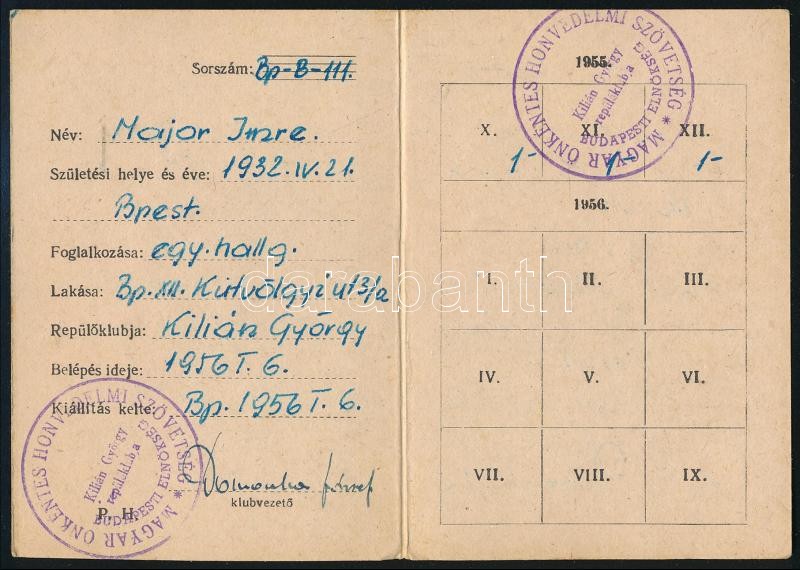 Sorszám: Bp-B-111.
Név: Major Imre.
Születési helye és éve: 1932. IV. 21.
Bpest.
Foglalkozása: egy. hallg.
Lakása: Bp. XII. Kútvölgyi u 13/a
Repülőklubja: Kilián György
Belépés ideje: 1956 I. 6.
Kiállítás kelte: Bp. 1956 I. 6.
József
klubvezető
P. H.
MAGYAR ÖNKÉNTES HONVÉDELMI SZÖVETSÉG *
BUDAPESTI ELNÖKSÉG
Kilián György
repülőklubja
1955.
X. XI. XII.
1- 1- 1-
1956.
I. II. III.
IV. V. VI.
VII. VIII. IX.
MAGYAR ÖNKÉNTES HONVÉDELMI SZÖVETSÉG *
BUDAPESTI ELNÖKSÉG
Kilián György
repülőklubja
darabanth